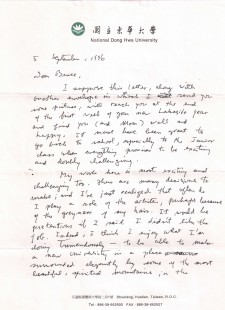 國立東華大學
National Dong Hwa University
5 September, 1996
Dear Bruce,
I suppose this letter, along with
another envelope in which I send you
some pictures, will reach you at the end
of the first week of your new
and find you (and Mom) well and
happy. It must have been great to
go back to school, especially to the Junior
class when everything promises to be exciting
and doubly challenging.
My work here is most exciting and
challenging too. There are many decisions to
make, and I've just realized that often he
I play a role of the arbiter, perhaps because
of the greyness of my hair. It would be
pretentious if I said I didn't like the
job. Indeed, I think I enjoy what I'm
doing tremendously — to be able to make
a new university in a place
surrounded elegantly by some of the most
beautiful, spirited mountains in the
Shoufeng, Hualien, Taiwan, R.O.C.